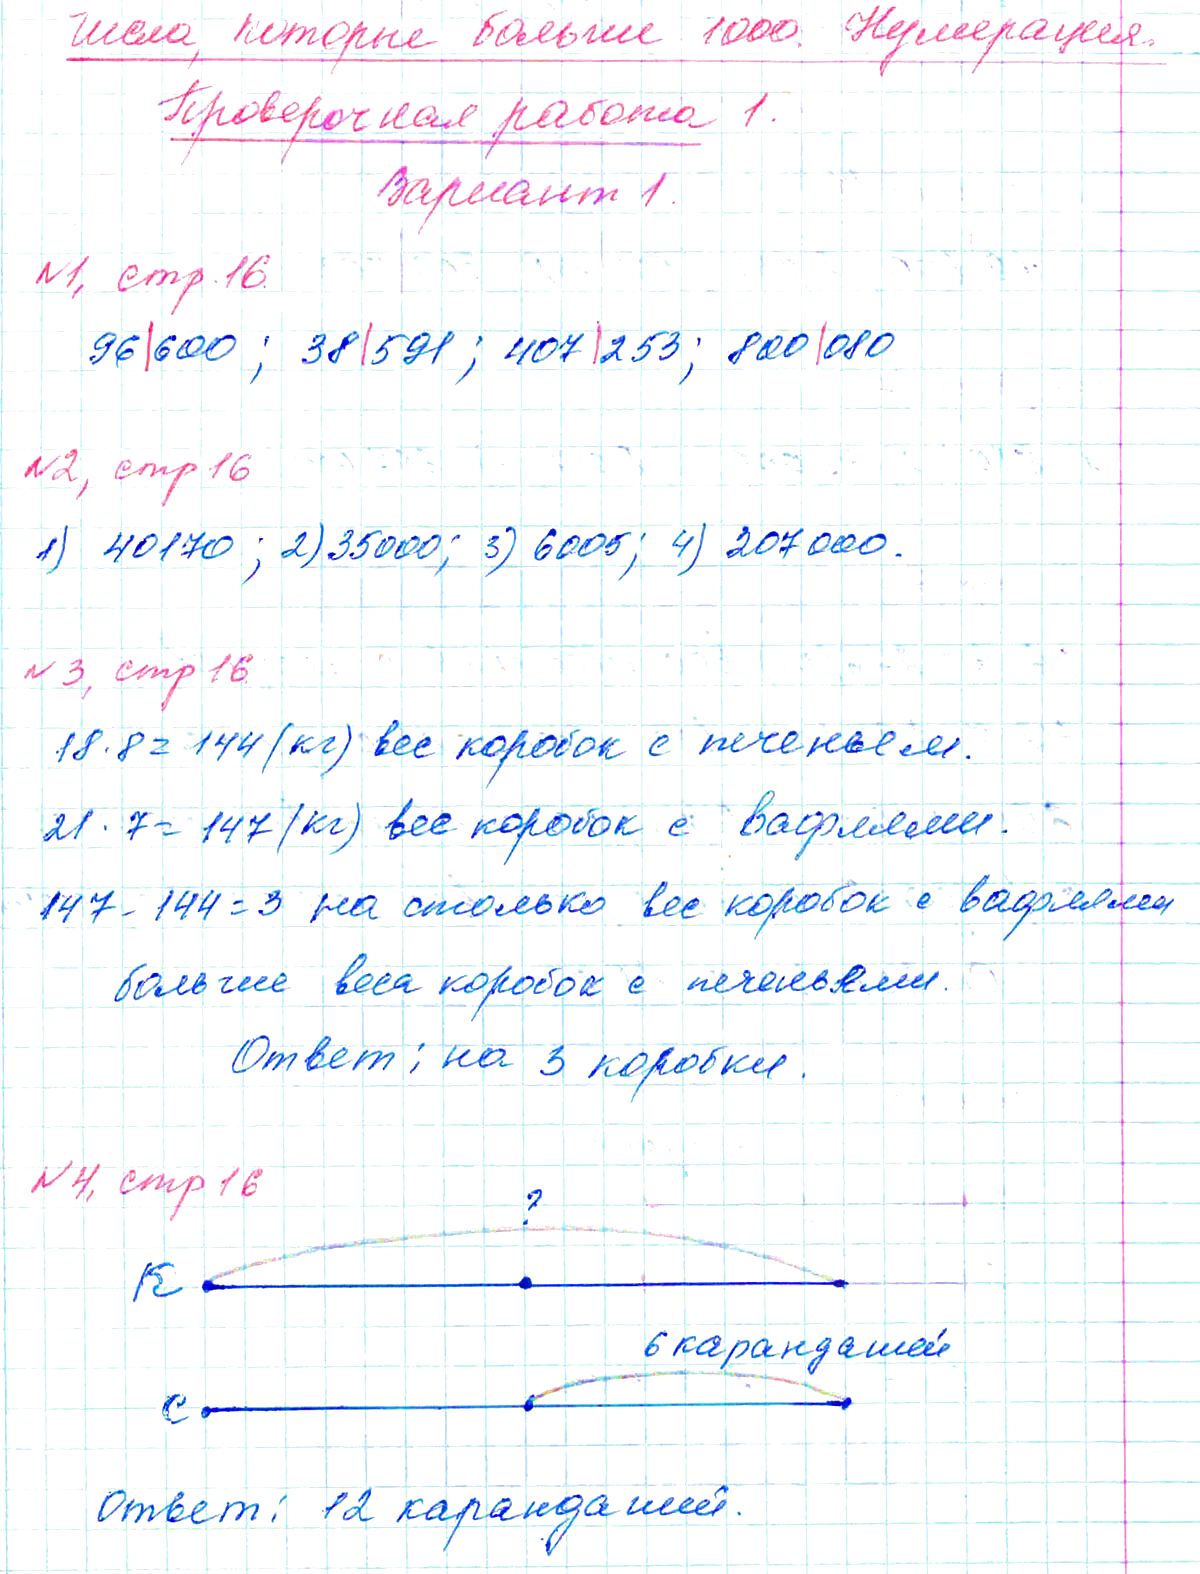 Числа, которые больше 1000. Нумерация.
Проверочная работа 1.
Вариант 1.
№1, стр. 16
96|600 ; 38|591 ; 407|253 ; 800|080
№2, стр 16
1) 40170 ; 2) 35000; 3) 6005; 4) 207000.
№3, стр 16
18 · 8 = 144 (кг) вес коробок с печеньем.
21 · 7 = 147 (кг) вес коробок с вафлями.
147 - 144 = 3 на столько вес коробок с вафлями
больше веса коробок с печеньями.
Ответ: на 3 коробки.
№4, стр 16
?
К
6 карандашей
С
Ответ: 12 карандашей.